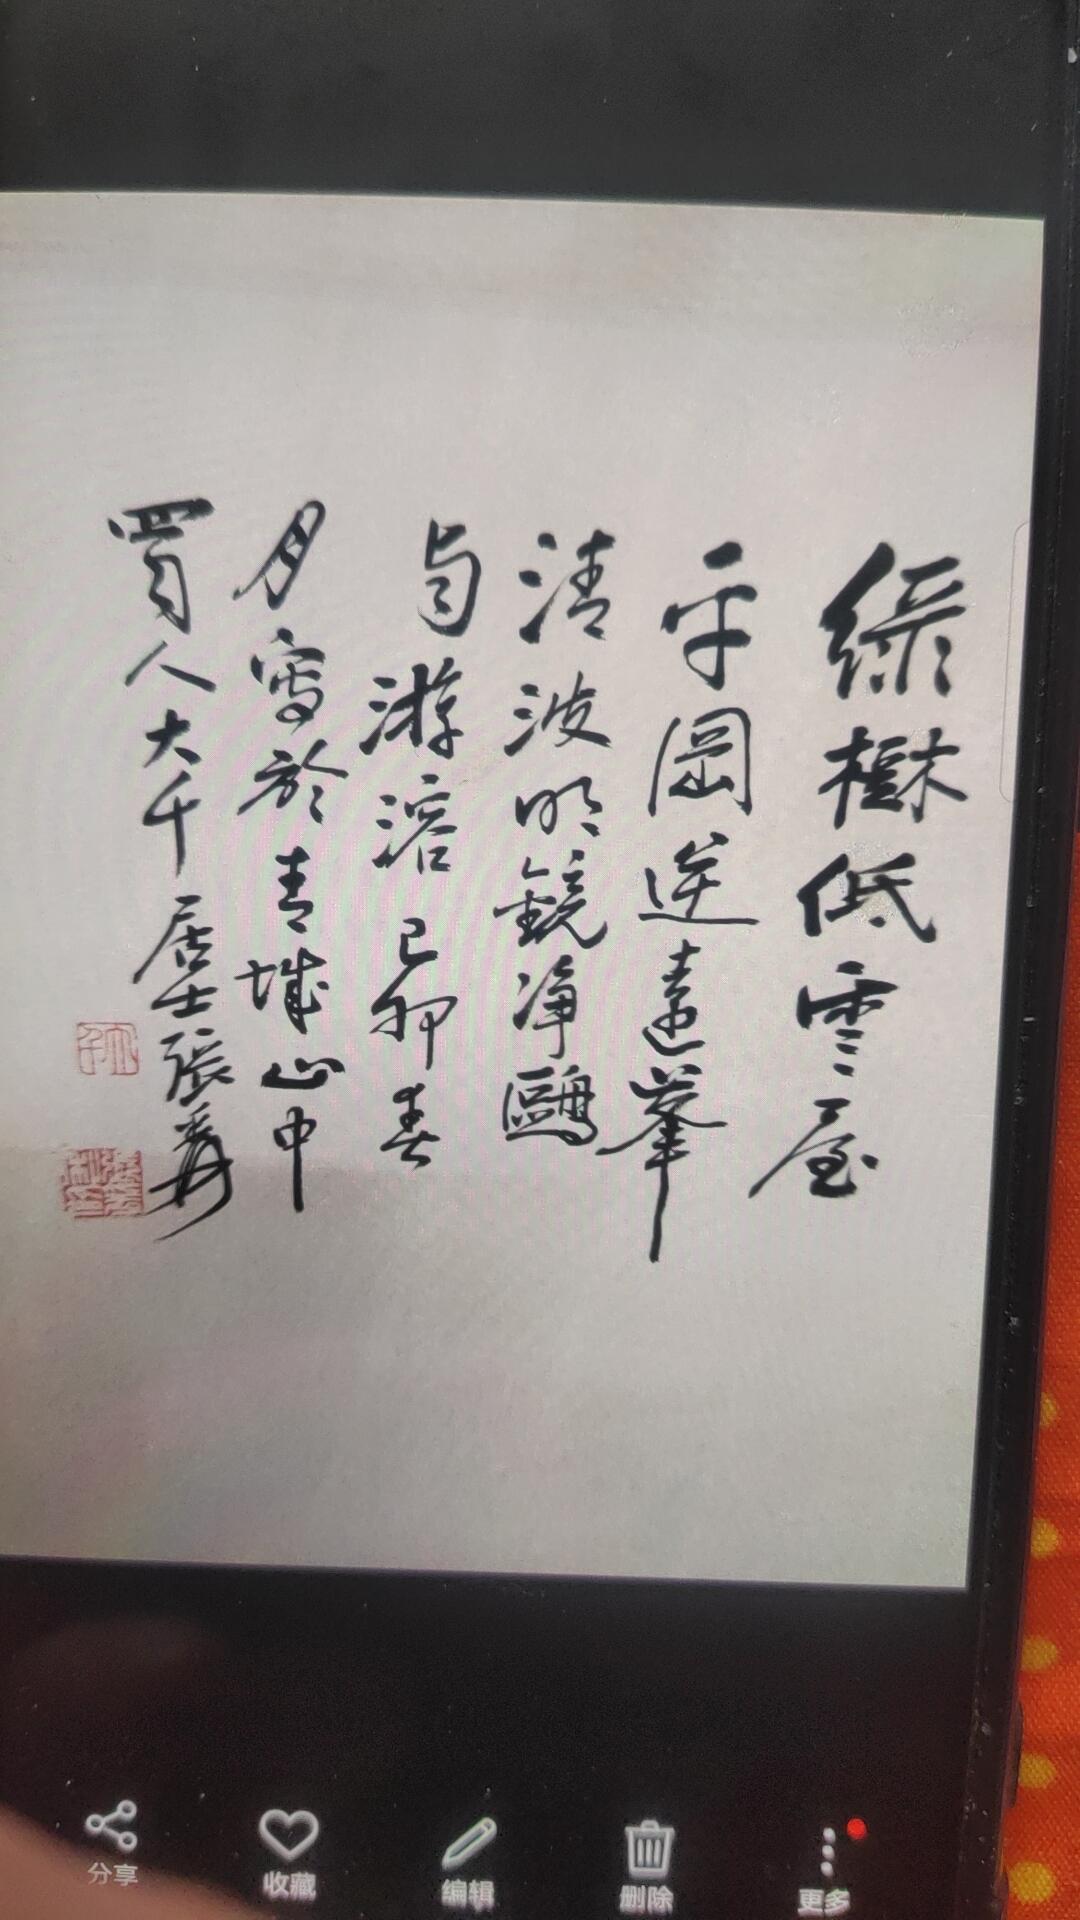 綠樹低雲屋
平岡逆遠峯
清波明鏡净鷗
与游溶 已卯春
月寫於青城山中
蜀人大千居士張爰
分享
收藏
编辑
删除
更多